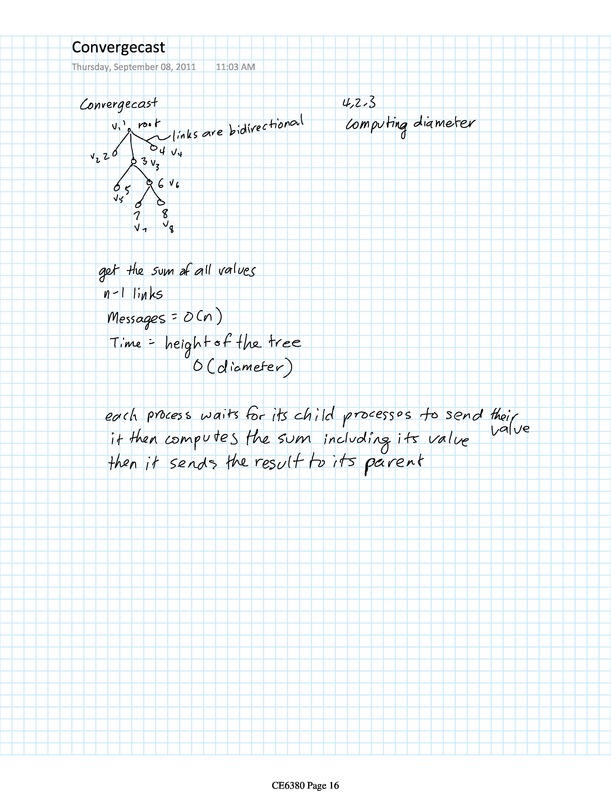 Convergecast
Thursday, September 08, 2011 11:03 AM
Convergecast
4,2.3
computing diameter
v1 1 root
links are bidirectional
v2 2
4 v4
3 v3
5
v5
6 v6
7
v7
8
v8
get the sum of all values
n-1 links
Messages = O(n)
Time = height of the tree
O(diameter)
each process waits for its child processes to send their value
it then computes the sum including its value
then it sends the result to its parent
CE6380 Page 16